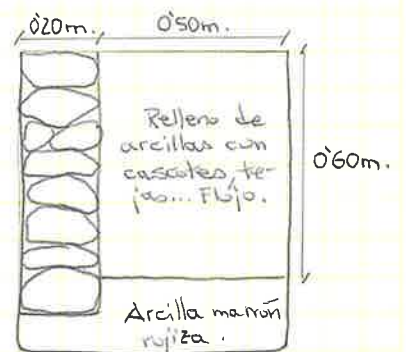 0'20m. 0'50m.
Relleno de
arcillas con
cascotes, te-
jas... Flojo.
0'60m.
Arcilla marrón
rojiza.